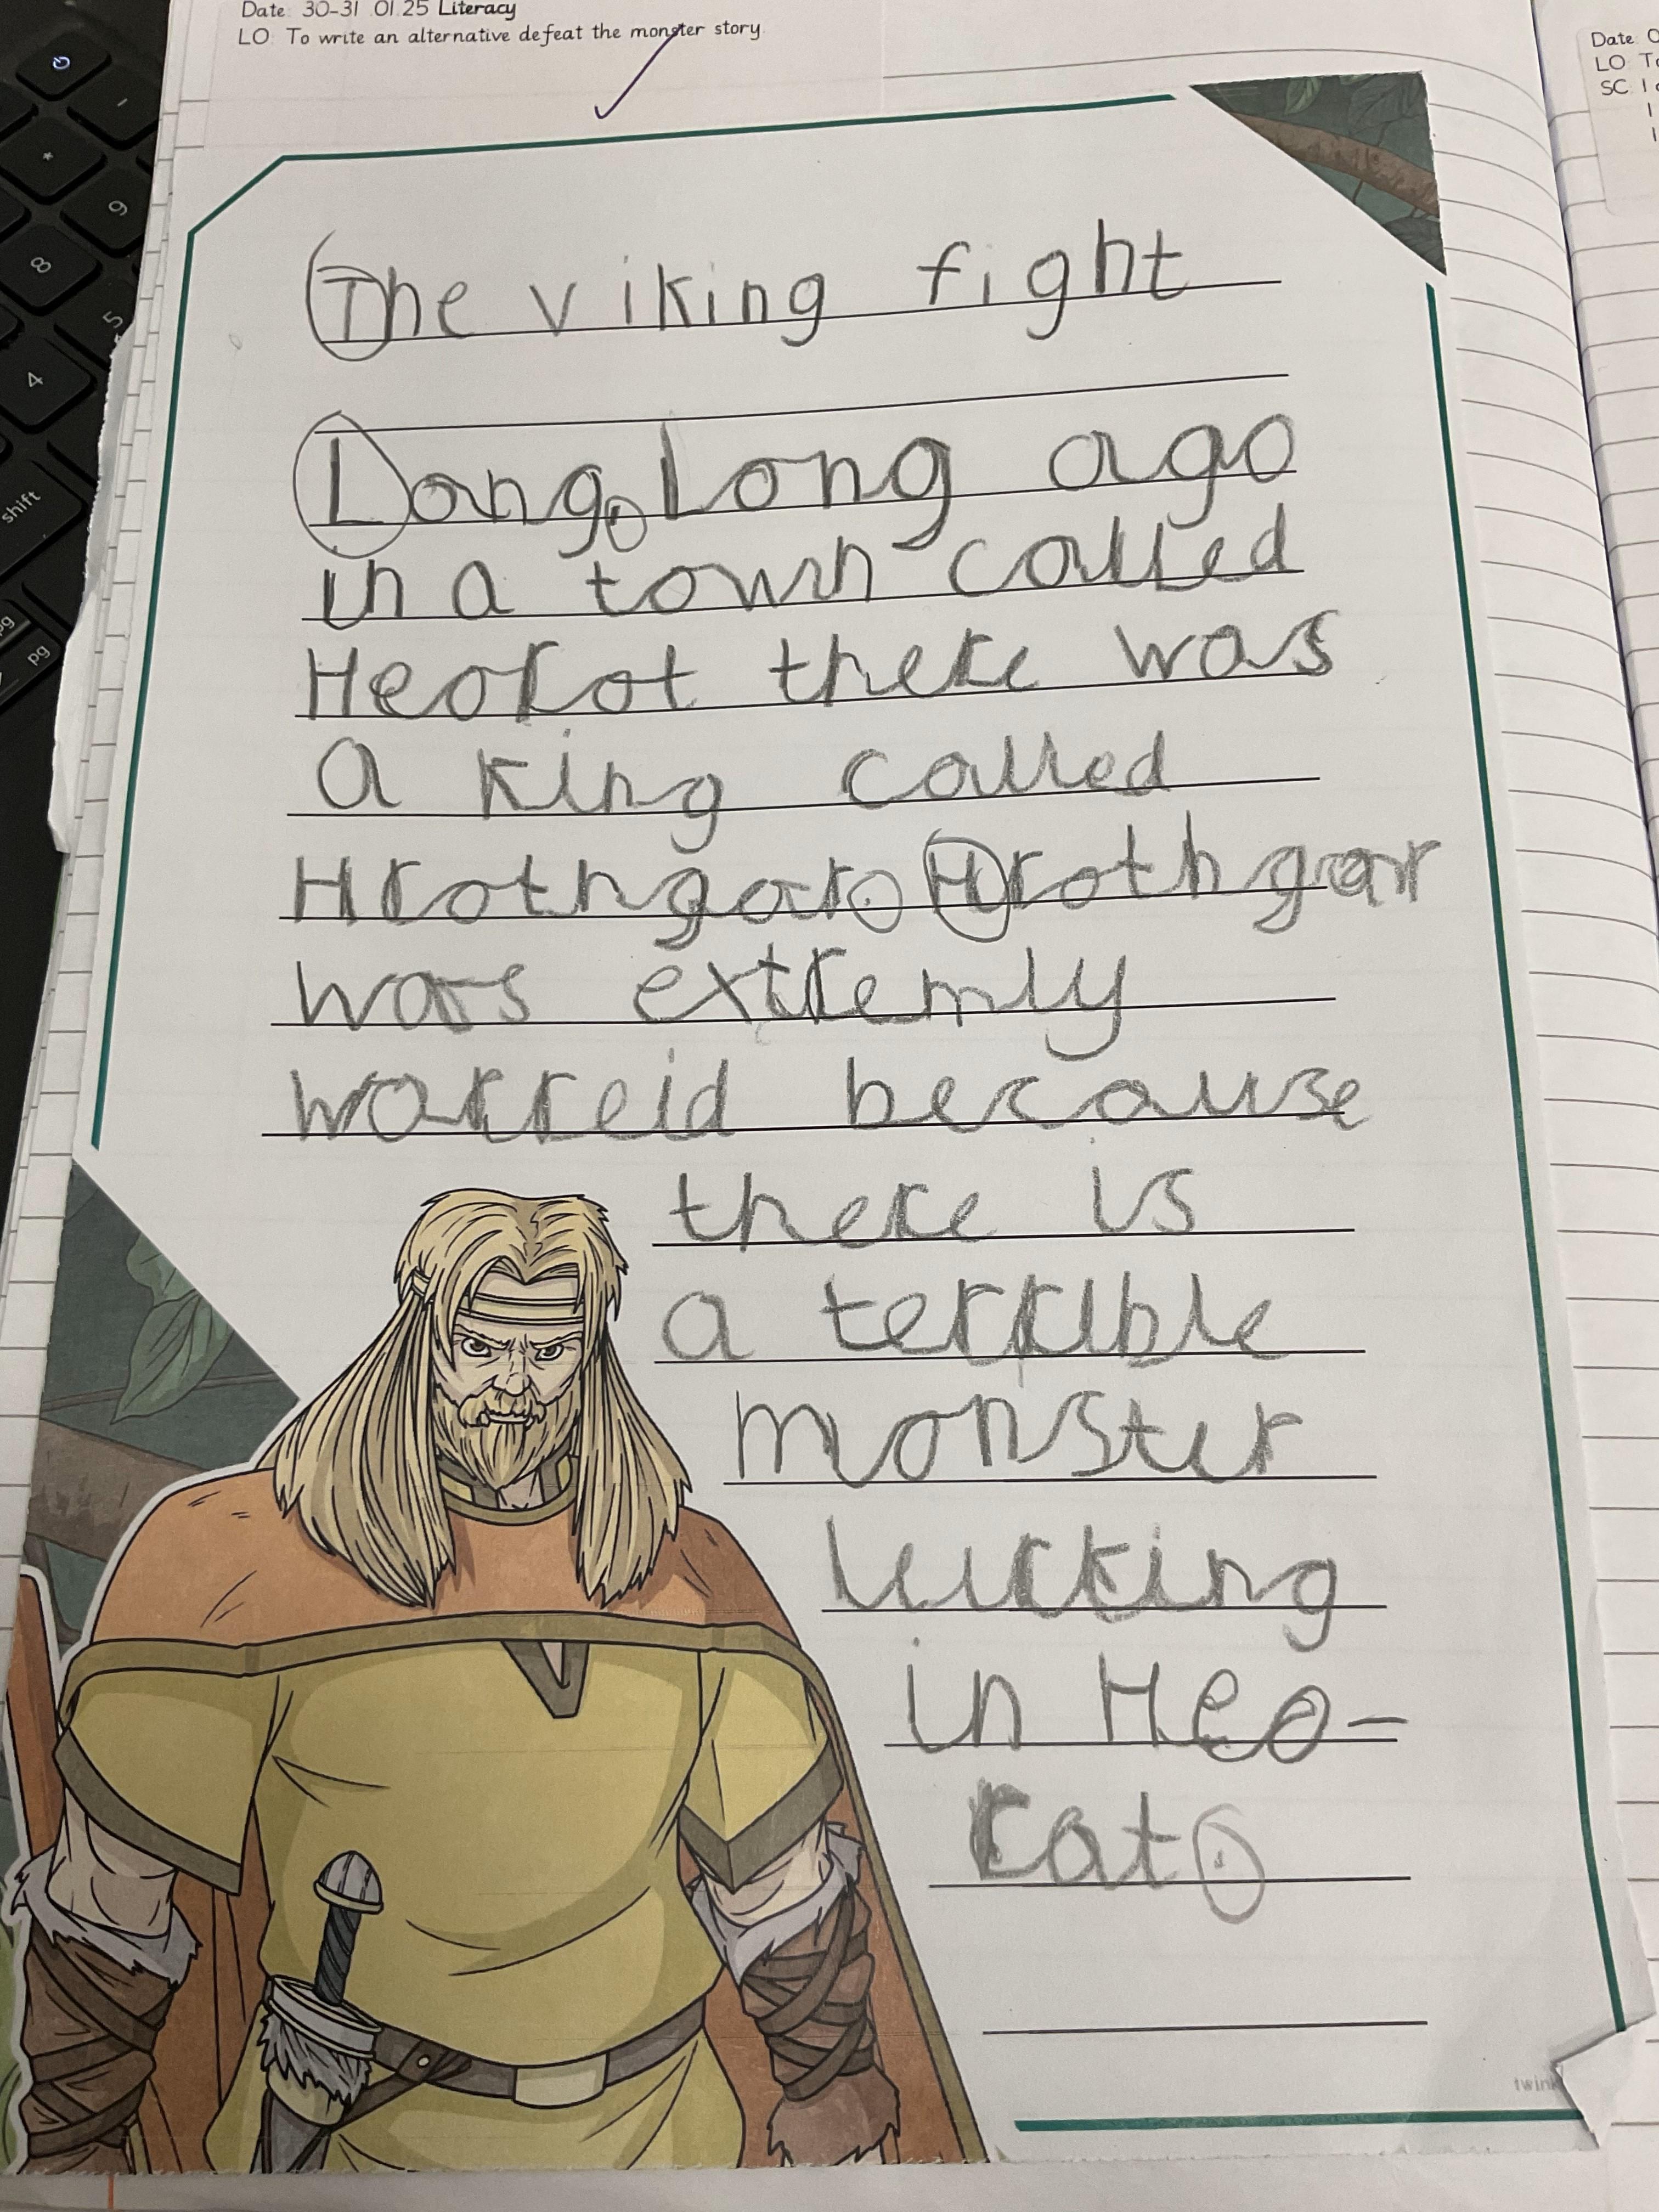 Date: 30-31.01.25 Literacy
LO: To write an alternative defeat the monster story.
The viking fight
Long, long ago
in a town called
Heorot there was
a king called
Hrothgar. Hrothgar
was extremly
worreid because
there is
a terrible
monster
lurking
in Heo-
rot.
Date: 0
LO: To
SC: I
I
I
shift
pg
pg
*
9
8
5
4
twink